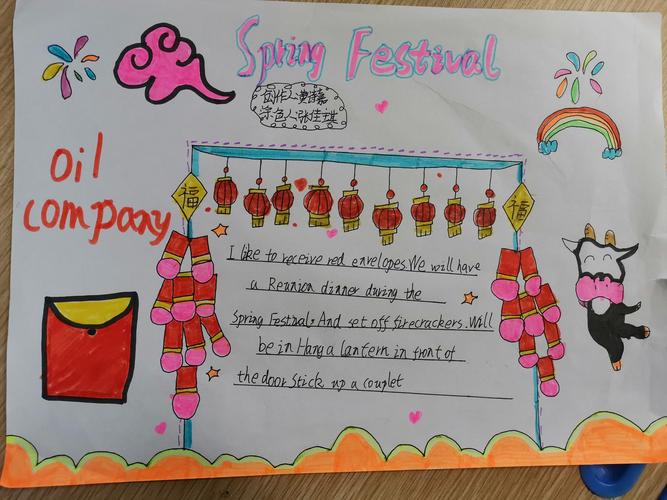 Spring Festival
创作人:黄
涂色人:张佳琪
oil
company
福
福
I like to receive red envelopes. We will have
a Reunion dinner during the
Spring Festival. And set off firecrackers. Will
be in Hang a lantern in front of
the door stick up a couplet